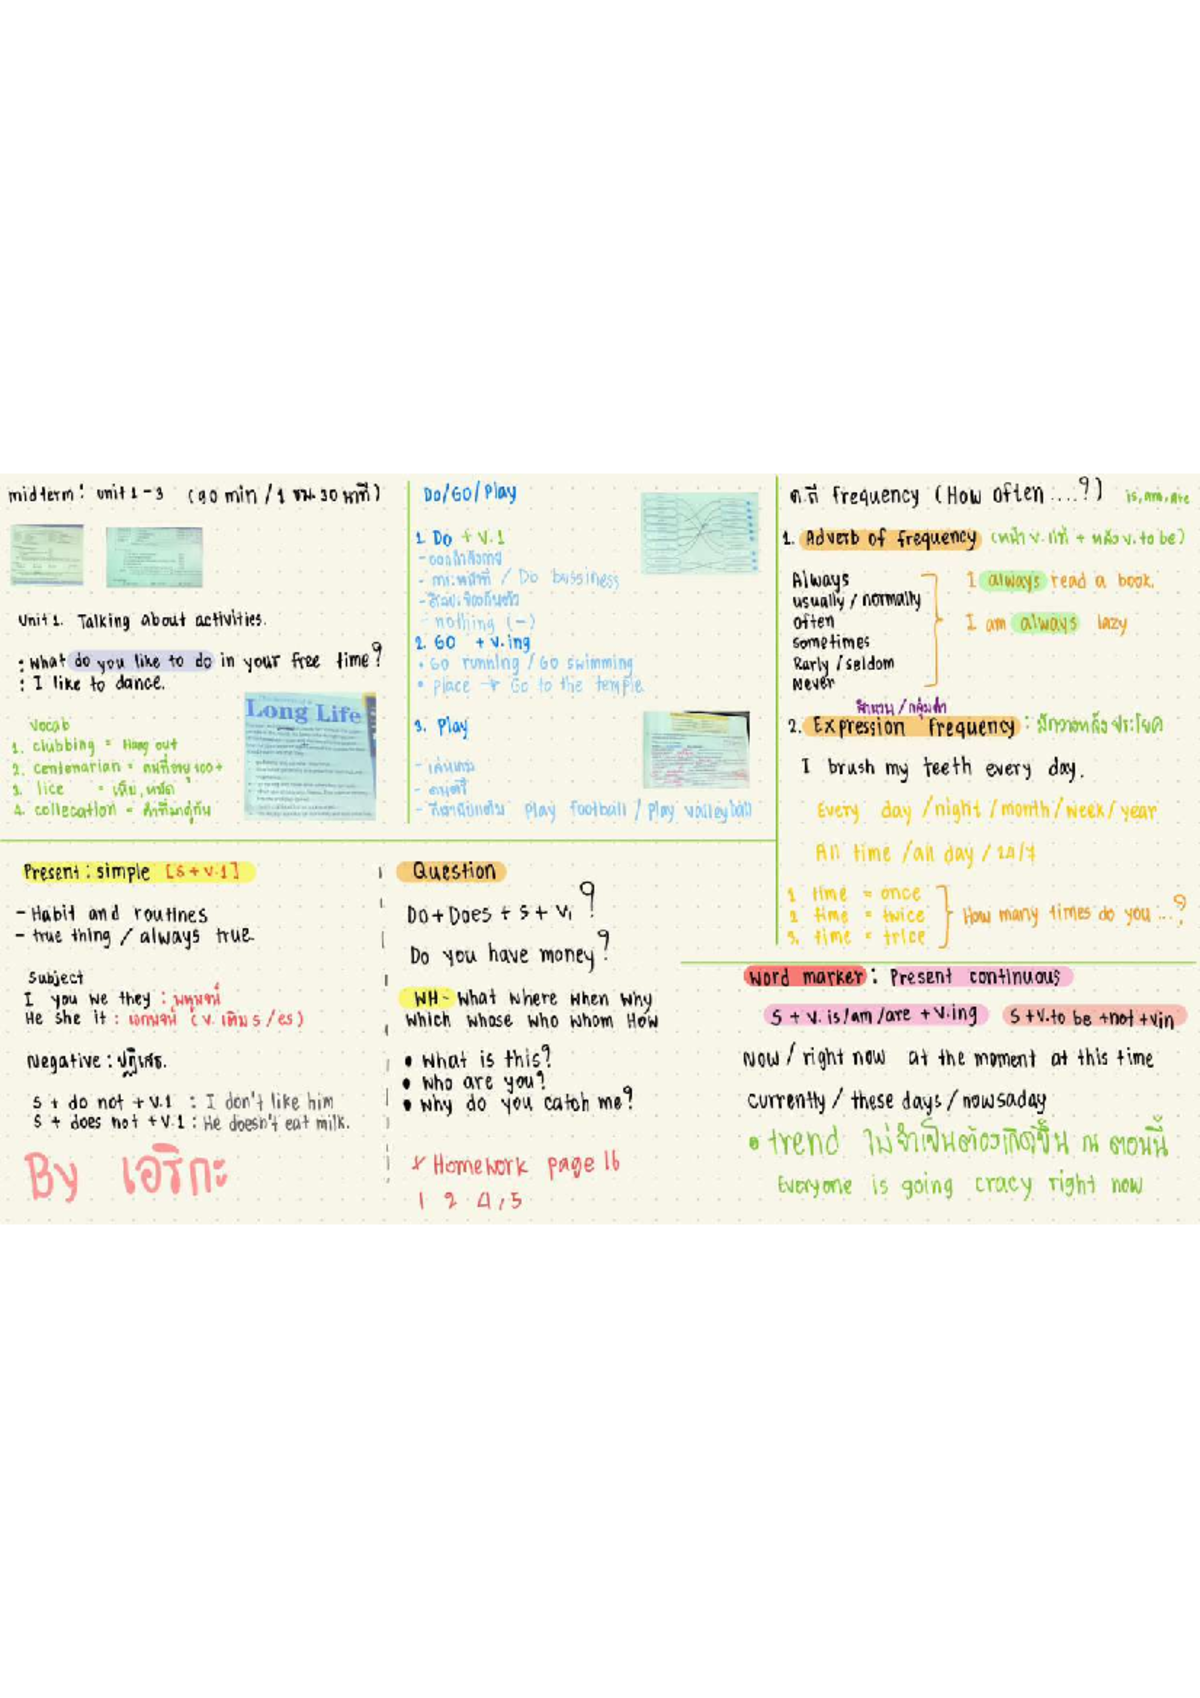 midterm : unit 1 - 3 (90 min / 1 ชม. 30 นาที)
Unit 1. Talking about activities.
: What do you like to do in your free time?
: I like to dance.
Vocab
1. clubbing = Hang out
2. centenarian = คนที่อายุ 100+
3. lice = เห็บ, หมัด
4. collecation = คำที่มาคู่กัน
Long Life
Do/Go/Play
1. Do + V.1
- ออกกำลังกาย
- ภาระหน้าที่ / Do bussiness
- ศิลปะป้องกันตัว
- nothing (-)
2. Go + V.ing
• Go running / Go swimming
• place → Go to the temple
3. Play
- เล่นเกม
- ดนตรี
- กีฬาประเภททีม Play football / Play valleyball
ค.ถี่ frequency (How often ....?) is, am, are
1. Adverb of frequency (หน้า v. แท้ + หลัง v. to be)
Always
usually / normally
often
sometimes
Rarly / seldom
Never
I always read a book.
I am always lazy
สำนวน / กลุ่มคำ
2. Expression frequency : มักวางหลังประโยค
I brush my teeth every day.
Every day / night / month / week / year
All time / all day / 24/7
1 time = once
2 time = twice
3. time = trice
How many times do you ...?
Present : simple [S + V.1]
- Habit and routines
- true thing / always true
Subject
I you we they : พหูพจน์
He she it : เอกพจน์ (v. เติม s / es)
Negative : ปฏิเสธ.
S + do not + V.1 : I don't like him
S + does not + V.1 : He doesn't eat milk.
By เอริกะ
Question
Do + Does + S + V1 ?
Do you have money?
WH - What where when why
which whose who whom How
• What is this?
• Who are you?
• Why do you catch me?
* Homework page 16
1 2 4, 5
Word marker : Present continuous
S + V. is/am/are + V.ing S + V.to be + not + Vin
Now / right now at the moment at this time
currently / these days / nowsaday
• trend ไม่จำเป็นต้องเกิดขึ้น ณ ตอนนี้
Everyone is going cracy right now